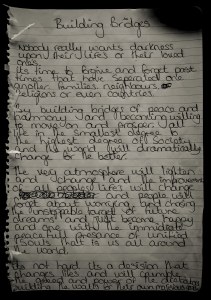 Building Bridges
Nobody really wants darkness
upon their lifes or their loved
ones.
Its time to forgive and forget past
times that have seperated one
another. families, neighbours, or
religions or even countries.
building bridges of peace and
harmony and becoming willing
to move on and prosper will
let in the smallest degree to
the highest degree of society
and its world will dramatically
change for the better.
The very atmosphere will lighten
and change and the
of all peoples lifes will change
and people will
forget about worrying and chasing
the unstopable target of future
dreams and just become happy
and one with the immediate
peacefull presence of united
souls that is us all around
the world.
Its not hard its a decision that
changes lifes and will crumble
the
building the walls of